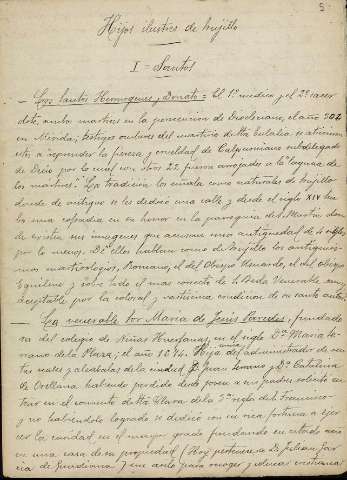 5
Hijos ilustres de Trujillo
I = Santos
— Los Santos Hermogenes y Donato = El 1º medico y el 2º sacer
dote, ambos martires en la persecucion de Diocleciano, el año 302
en Merida; testigos oculares del martirio de Sta Eulalia se atrevieron
a reprender la fiereza y crueldad de Calpurniano subdelegado
de Dacio por lo cual con otros 22 fueron arrojados a la laguna de
los martires. La tradicion los señala como naturales de Trujillo
donde de antiguo se les dedicó una calle y desde el siglo XIV hu
bo una cofradia en su honor en la parroquia de S. Martin don
de existian sus imagenes que acusan una antiguedad de 4 siglos
por lo menos. De ellos hablan como de Trujillo los antiquisi
mos martirologios, Romano, el del Obispo Usuardo, el del obispo
Equilino y sobre todo el mas conocido de S. Beda Venerable muy
aceptable por la colosal y rarisima condicion de su santo autor.
— La venerable Sor Maria de Jesus Paredes, fundado
ra del colegio de Niñas Huerfanas, en el siglo Dª Maria Se
rrano de la Plaza, el año 10 Hija del administrador de ren
tas reales y alcabalas de la ciudad, D. Juan Serrano y Dª Catalina
de Orellana habiendo perdido desde joven a sus padres solicitó en
trar en el convento de Sta Clara de la 3ª regla de S. Francisco
y no habiendolo logrado se dedicó con su rica fortuna a ejer
cer la caridad en el mayor grado fundando en estado
en una casa de su propiedad (Hoy pertenece a D. Julian Gar
cia de Guadiana) un asilo para recoger y educar cristiana